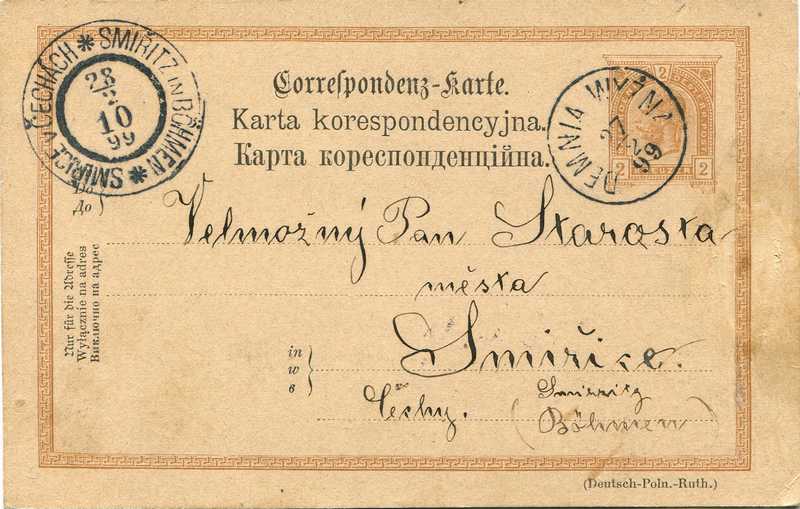 SMIŘITZ IN BÖHMEN * SMIŘICE V ČECHÁCH *
28
2
10
99
Correspondenz-Karte.
Karta korespondencyjna.
Карта кореспонденційна.
2 2
2
DEMNIA WYŻNA
27
2
99
Da
До
Velmožný Pan Starosta
města
Nur für die Adresse
Wyłącznie na adres
Виключно на адрес
in
w
в
Smiřice.
Čechy.
Smirzitz
(Böhmen)
(Deutsch-Poln.-Ruth.)